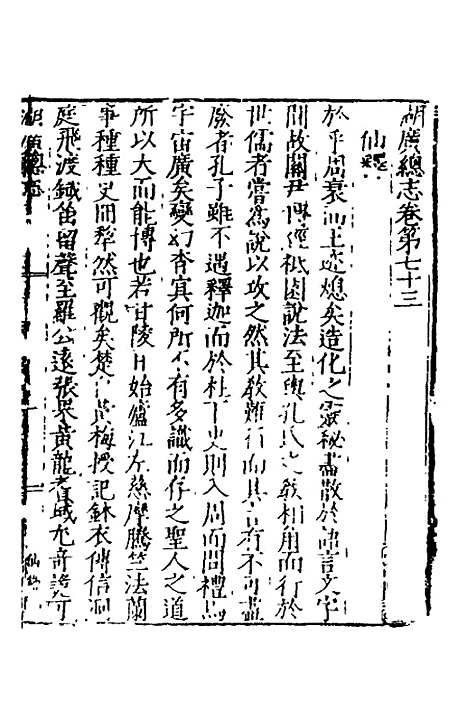 胡廣總志卷第七十三
仙釋
於乎周衰而王迹熄矣造化之靈秘盡散於語言文字
間故關尹傳經祇園說法至與孔氏之教相用而行於
世儒者嘗為說以攻之然其教雖行而其言有不可盡
廢者孔子雖不遇釋迦而於柱下史則入周而問禮焉
宇宙廣矣變幻杳冥何所不有多識而存之聖人之道
所以大而能博也若甘陵日始廬江左慈摩騰竺法蘭
事種種史冊犂然可觀矣楚 黃梅授記鉢衣傳信洞
庭飛渡鐵笛留聲至羅公遠張果黃龍者咸尤奇詭可
湖廣總志
仙釋